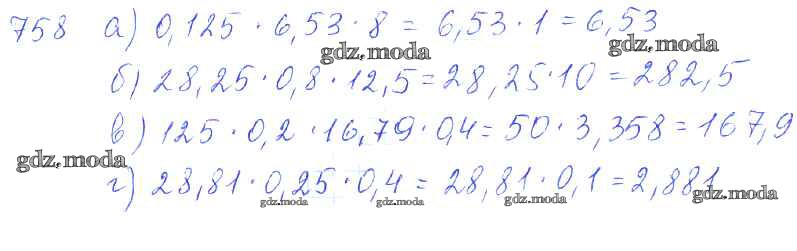 758 а) 0,125 · 6,53 · 8 = 6,53 · 1 = 6,53
gdz.moda gdz.moda
б) 28,25 · 0,8 · 12,5 = 28,25 · 10 = 282,5
в) 125 · 0,2 · 16,79 · 0,4 = 50 · 3,358 = 167,9
gdz.moda
г) 28,81 · 0,25 · 0,4 = 28,81 · 0,1 = 2,881
gdz.moda gdz.moda gdz.moda gdz.moda